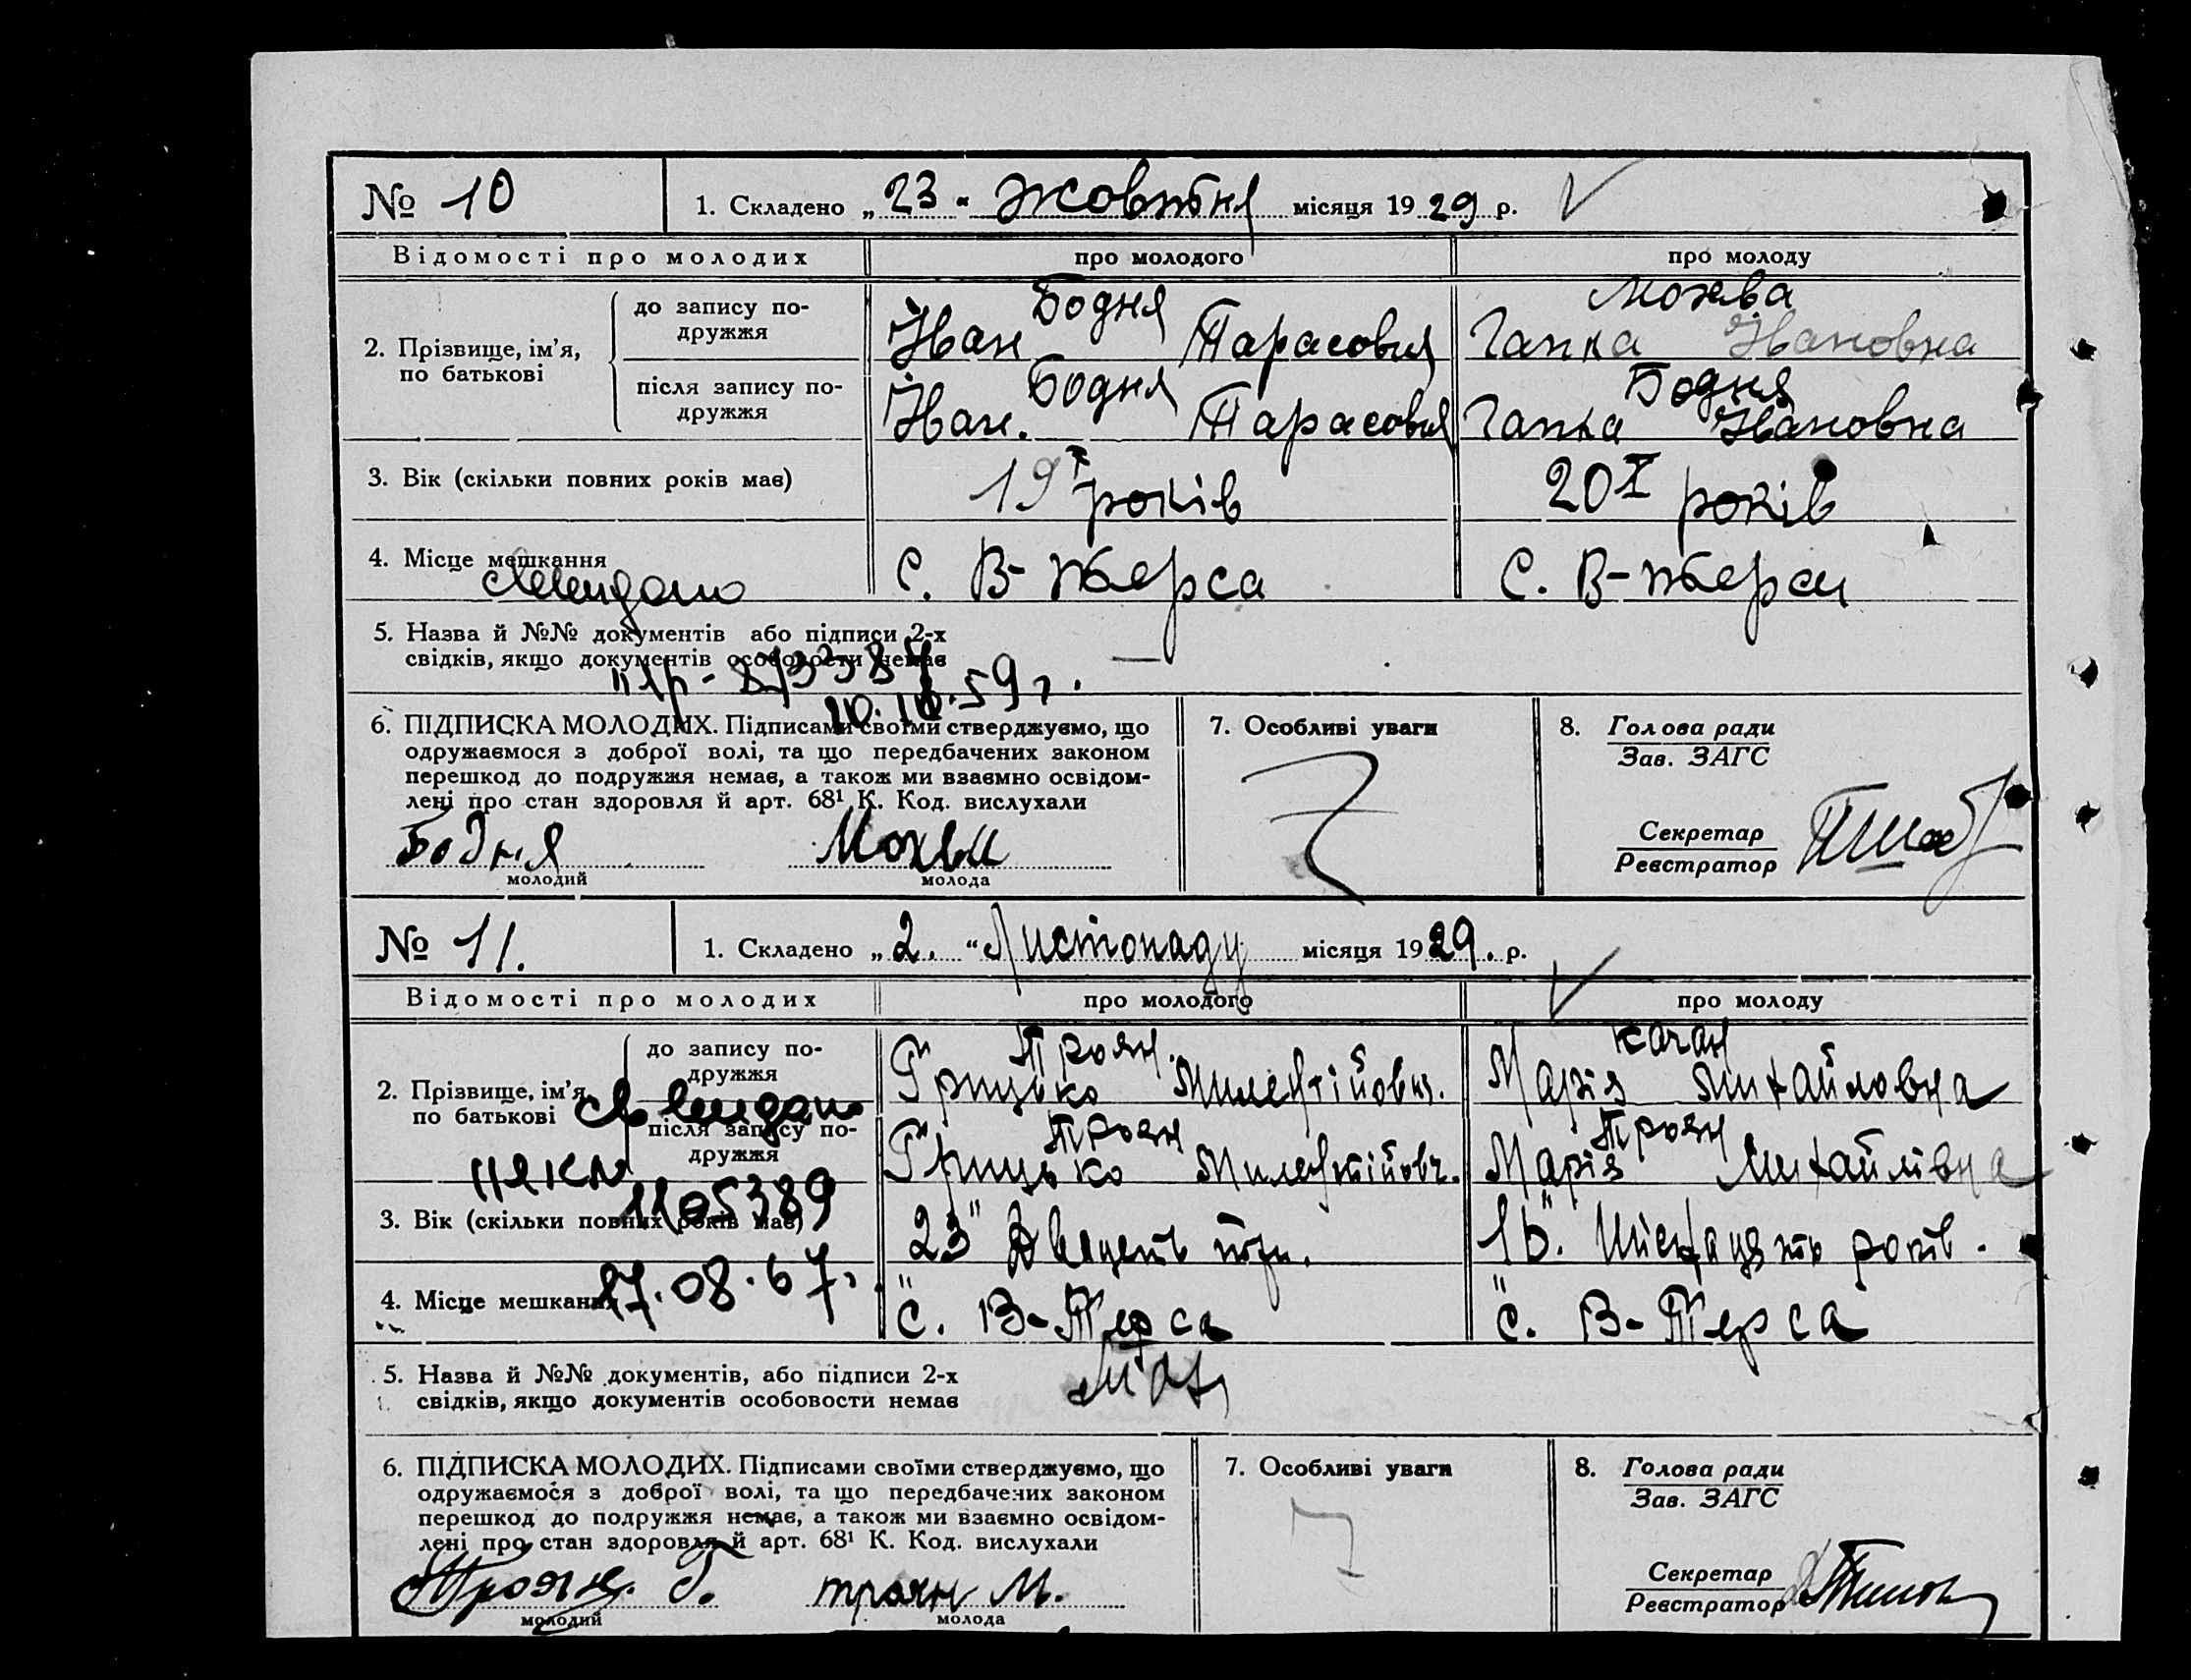 № 10
1. Складено „ 23 " Жовтня місяця 1929 р.
Відомості про молодих
про молодого
про молоду
2. Прізвище, ім'я, по батькові
до запису подружжя
Бодня
Іван Тарасович
Ганна Івановна
після запису подружжя
Бодня
Іван. Тарасович
Бодня
Ганна Івановна
3. Вік (скільки повних років має)
19 років
20 років
4. Місце мешкання
С. В-Терса
С. В-Терси
5. Назва й №№ документів або підписи 2-х
свідків, якщо документів особовости немає
—
59 г.
6. ПІДПИСКА МОЛОДИХ. Підписами своїми стверджуємо, що
одружаємося з доброї волі, та що передбачених законом
перешкод до подружжя немає, а також ми взаємно освідом-
лені про стан здоровля й арт. 68¹ К. Код. вислухали
Бодня
молодий
молода
7. Особливі уваги
8. Голова ради
Зав. ЗАГС
Секретар
Реєстратор
№ 11.
1. Складено „ 2. " Листопаду місяця 1929. р.
Відомості про молодих
про молодого
про молоду
2. Прізвище, ім'я, по батькові
до запису подружжя
Троян.
Грицько
Качан
Марія Михайловна
після запису подружжя
Троян
Грицько
Троян
Марія Михайлівна
1105389
3. Вік (скільки повних років має)
23" Двацять три.
16. років.
17.08.67г.
4. Місце мешкання
С. В-Терса
С. В-Терса
5. Назва й №№ документів, або підписи 2-х
свідків, якщо документів особовости немає
6. ПІДПИСКА МОЛОДИХ. Підписами своїми стверджуємо, що
одружаємося з доброї волі, та що передбачених законом
перешкод до подружжя немає, а також ми взаємно освідом-
лені про стан здоровля й арт. 68¹ К. Код. вислухали
Троян. Г.
молодий
троян М.
молода
7. Особливі уваги
8. Голова ради
Зав. ЗАГС
Секретар
Реєстратор